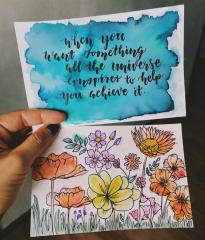 when you
want something
all the universe
conspires to help
you achieve it.